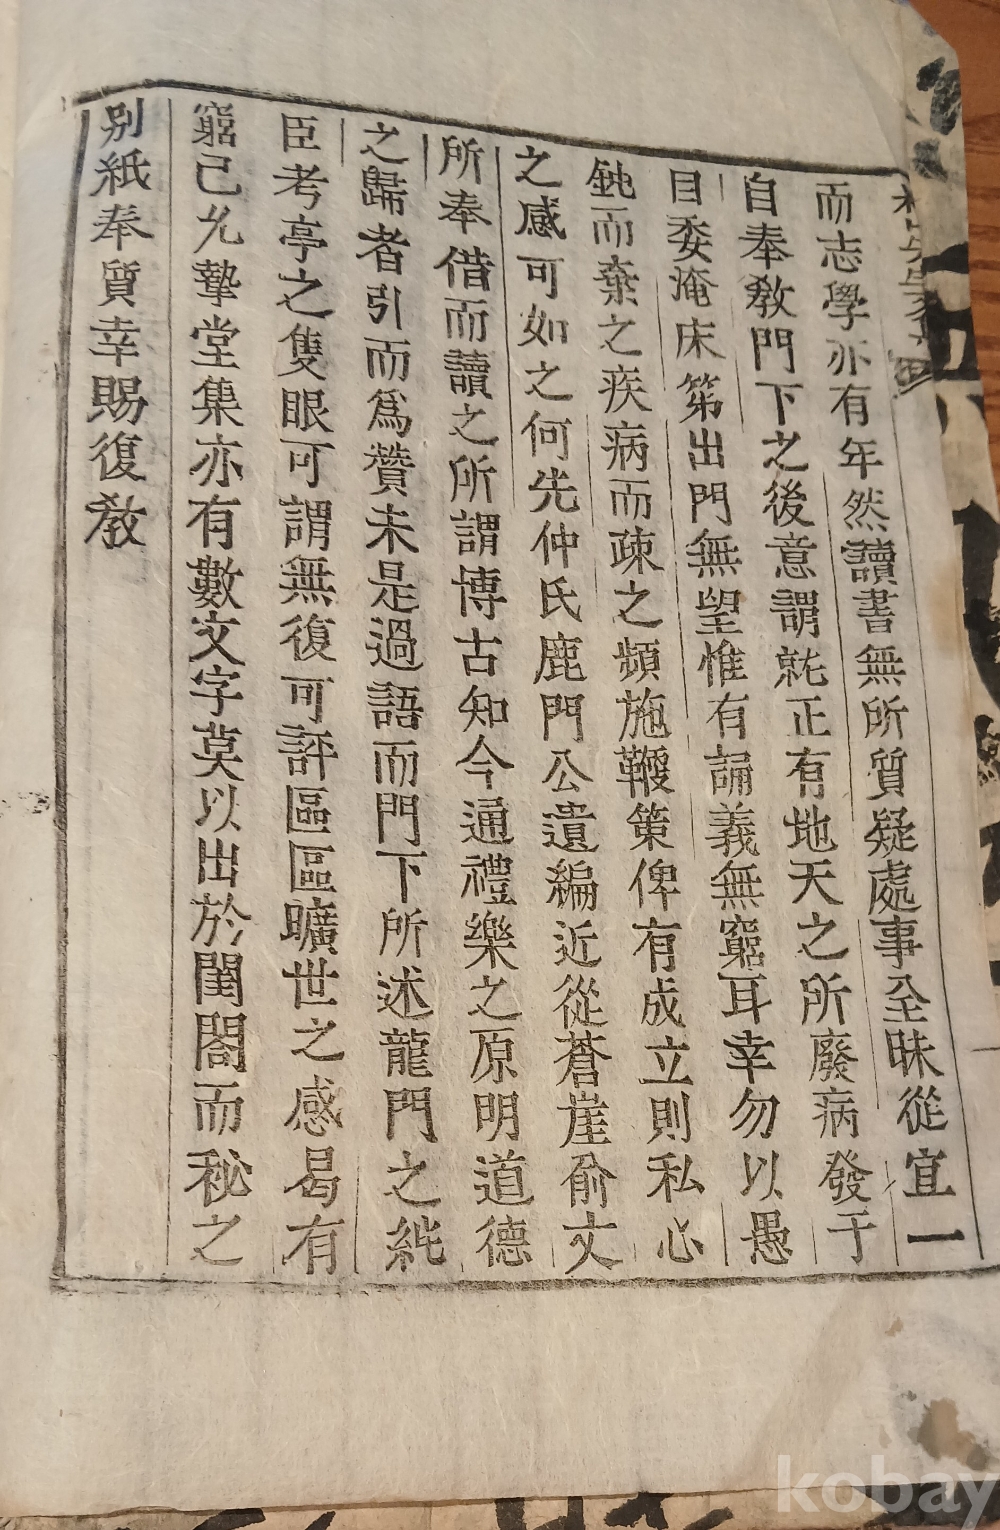 而志學亦有年然讀書無所質疑處事全昧從宜一
自奉教門下之後意謂就正有地天之所廢病發于
目委淹床第出門無望惟有誦義無窮耳幸勿以愚
鈍而棄之疾病而疎之頻施鞭策俾有成立則私心
之感可如之何先仲氏鹿門公遺編近從蒼崖俞丈
所奉借而讀之所謂博古知今通禮樂之原明道德
之歸者引而爲贊未是過語而門下所述龍門之純
臣考亭之隻眼可謂無復可評區區曠世之感曷有
窮已允摯堂集亦有數文字莫以出於閨閤而秘之
別紙奉質幸賜復敎
kobay